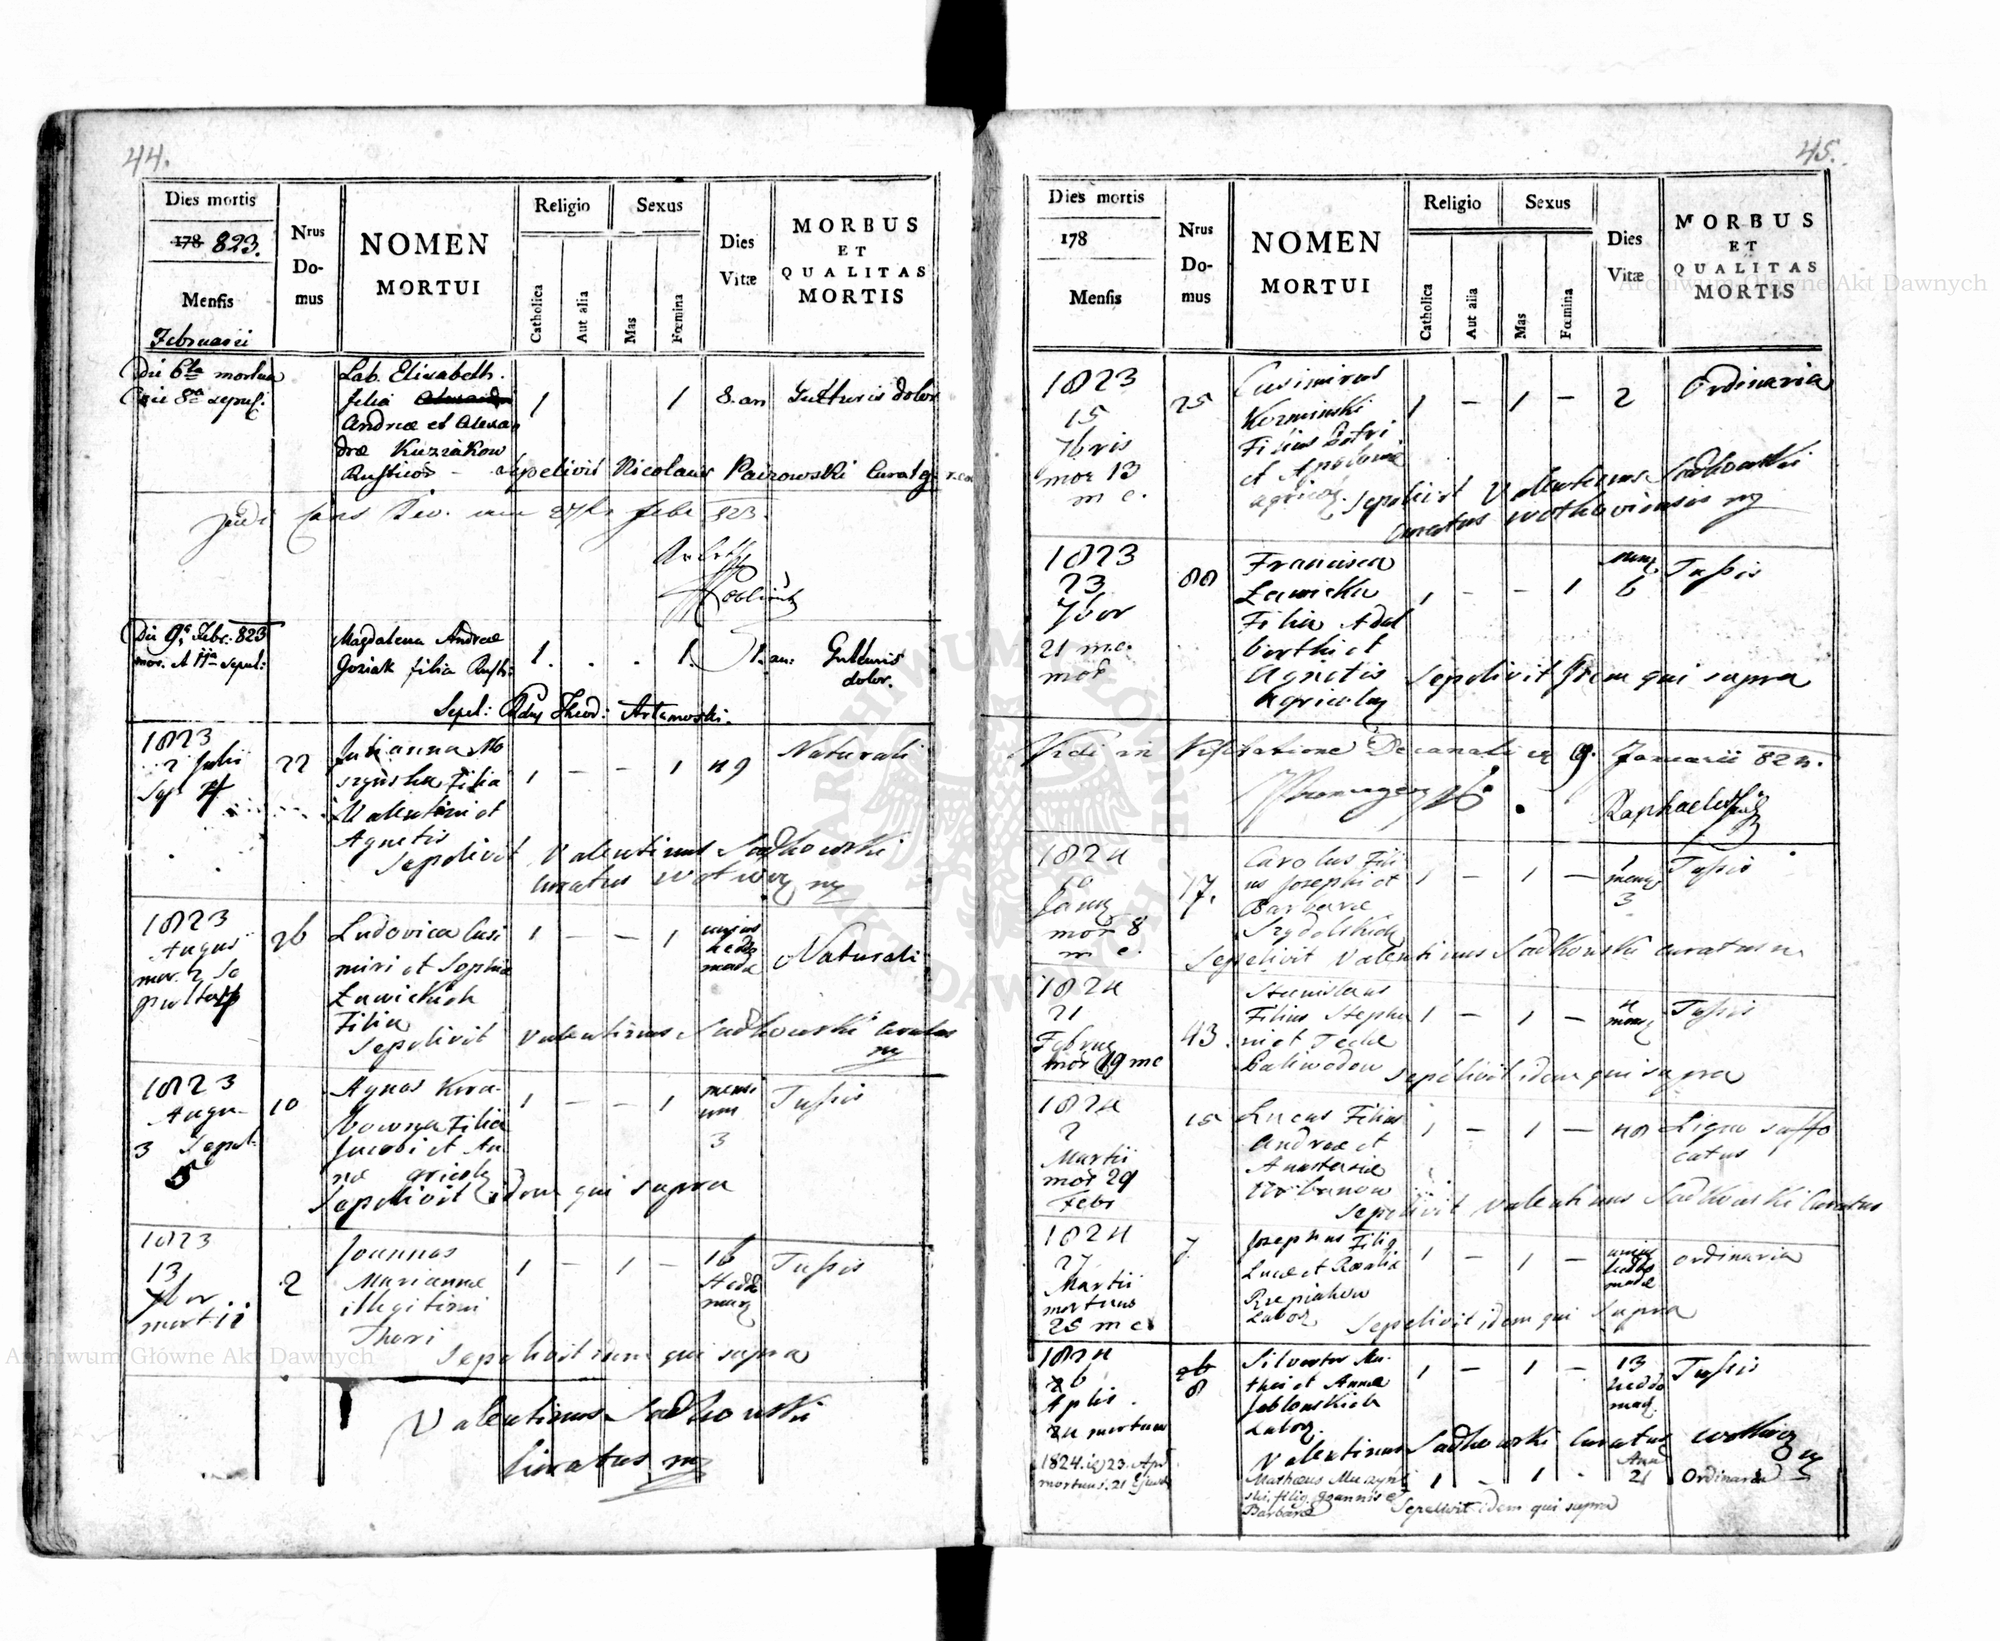 44.
Dies mortis
178 823.
Mensis
Februarii
Nrus
Do-
mus
NOMEN
MORTUI
Religio
Catholica
Aut alia
Sexus
Mas
Fœmina
Dies
Vitæ
MORBUS
ET
QUALITAS
MORTIS
Die 6ta mortua
Die 8a sepul:
Lab. Elisabeth.
filia
Andreæ et Alexan
dræ Kuzniakow
Rusticor
1
1
8. an
Gutturis dolor
Sepelivit Nicolaus Curatg
27 Febr 823.
Die 9a Febr: 823
mor. et 11a sepul:
Magdalena Andreæ
Goziak filia Rusti:
1.
.
.
1.
1. an:
Gutturis
dolor.
Sepel: Theod: Artamoski.
1823
2 Julii
Sep 4
22
Julianna Mo
szynska Filia
Valentini et
Agnetis
1
–
–
1
49
Naturali
Sepelivit Valentinus Sadkowski
Curatus
1823
Augus
mor. 2 Se
pult 4
26
Ludovica Casi
miri et Sophiæ
Zawickich
Filia
1
–
–
1
unius
hebdo
madæ
Naturali
Sepelivit Valentinus Sadkowski Curatus
1823
Augu-
3 Sepul-
5
10
Agnes Kora-
bowna Filia
Jacobi et An
næ
1
–
–
1
mensi
um
3
Tussis
Sepelivit idem qui supra
1823
13
7bor
mortii
2
Joannes
Mariannæ
illegitimi
Thori
1
–
1
–
16
Hebdo
mar
Tussis
Sepelivit idem qui supra
Valentinus Sadkowski
Curatus
45.
Dies mortis
178
Mensis
Nrus
Do-
mus
NOMEN
MORTUI
Religio
Catholica
Aut alia
Sexus
Mas
Fœmina
Dies
Vitæ
MORBUS
ET
QUALITAS
MORTIS
1823
15
7bris
mor 13
m e.
25
Casimirus
Kozminski
Filius Petri
et Apoloniæ
agricol.
1
–
1
–
2
Ordinaria
Sepelivit Valentinus Sadkowski
Curatus
1823
23
7bor
21 m.e.
mor
88
Francisca
Zawicka
Filia Adal
berthi et
Agnetis
Agricolar
1
-
-
1
mens
6
Tussis
Sepelivit idem qui supra
Vidi in Visitatione Decanali 9. Januarii 824.
Raphael
1824
10
Janu
mor 8
m e.
17.
Carolus Fili
us Josephi et
Barbaræ
Szydelskich
1
–
1
–
mens
3
Tussis
Sepelivit Valentinus Sadkowski curatus
1824
21
Februa
mor 19 me
43.
Stanislaus
Filius Stepha
ni et Teclæ
Paliwodow
1
–
1
–
4
mens
Tussis
Sepelivit idem qui supra
1824
2
Martii
mor 29
Febr
15
Lucas Filius
Andreæ et
Anastasiæ
Urbanow
1
–
1
–
48
Ligno suffo
catus
Sepelivit Valentinus Sadkowski Curatus
1824
27
Martii
mortuus
25 m e
7
Josephus Filig
Lucæ et Rosaliæ
Rzepiakow
Labor
1
–
1
–
unius
hebdo
madæ
ordinaria
Sepelivit idem qui supra
1824
26
Aplis.
24 mortuus
Silvester Ma-
thei et Annæ
Jablonskich
Labor.
1
–
1
–
13
hebdo
mad.
Tussis
Valentinus Sadkowski Curatus
1824. 23. Apr
mortuus. 21 Ejusd
Mathæus Muszyn
ski. filig. Joannis et
Barbaræ
1
-
1
-
Ann
21
Ordinaria
Sepelivit idem qui supra
Archiwum Główne Akt Dawnych
Archiwum Główne Akt Dawnych
ARCHIWUM GŁÓWNE AKT DAWNYCH